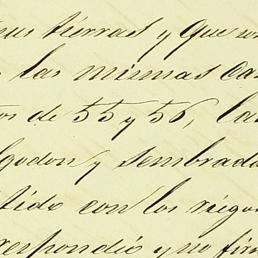 sus tierras y que no
las mismas ca
os de 55 y 56, la
lgodon y sembrada
tido con los riegos
respondió y no fir